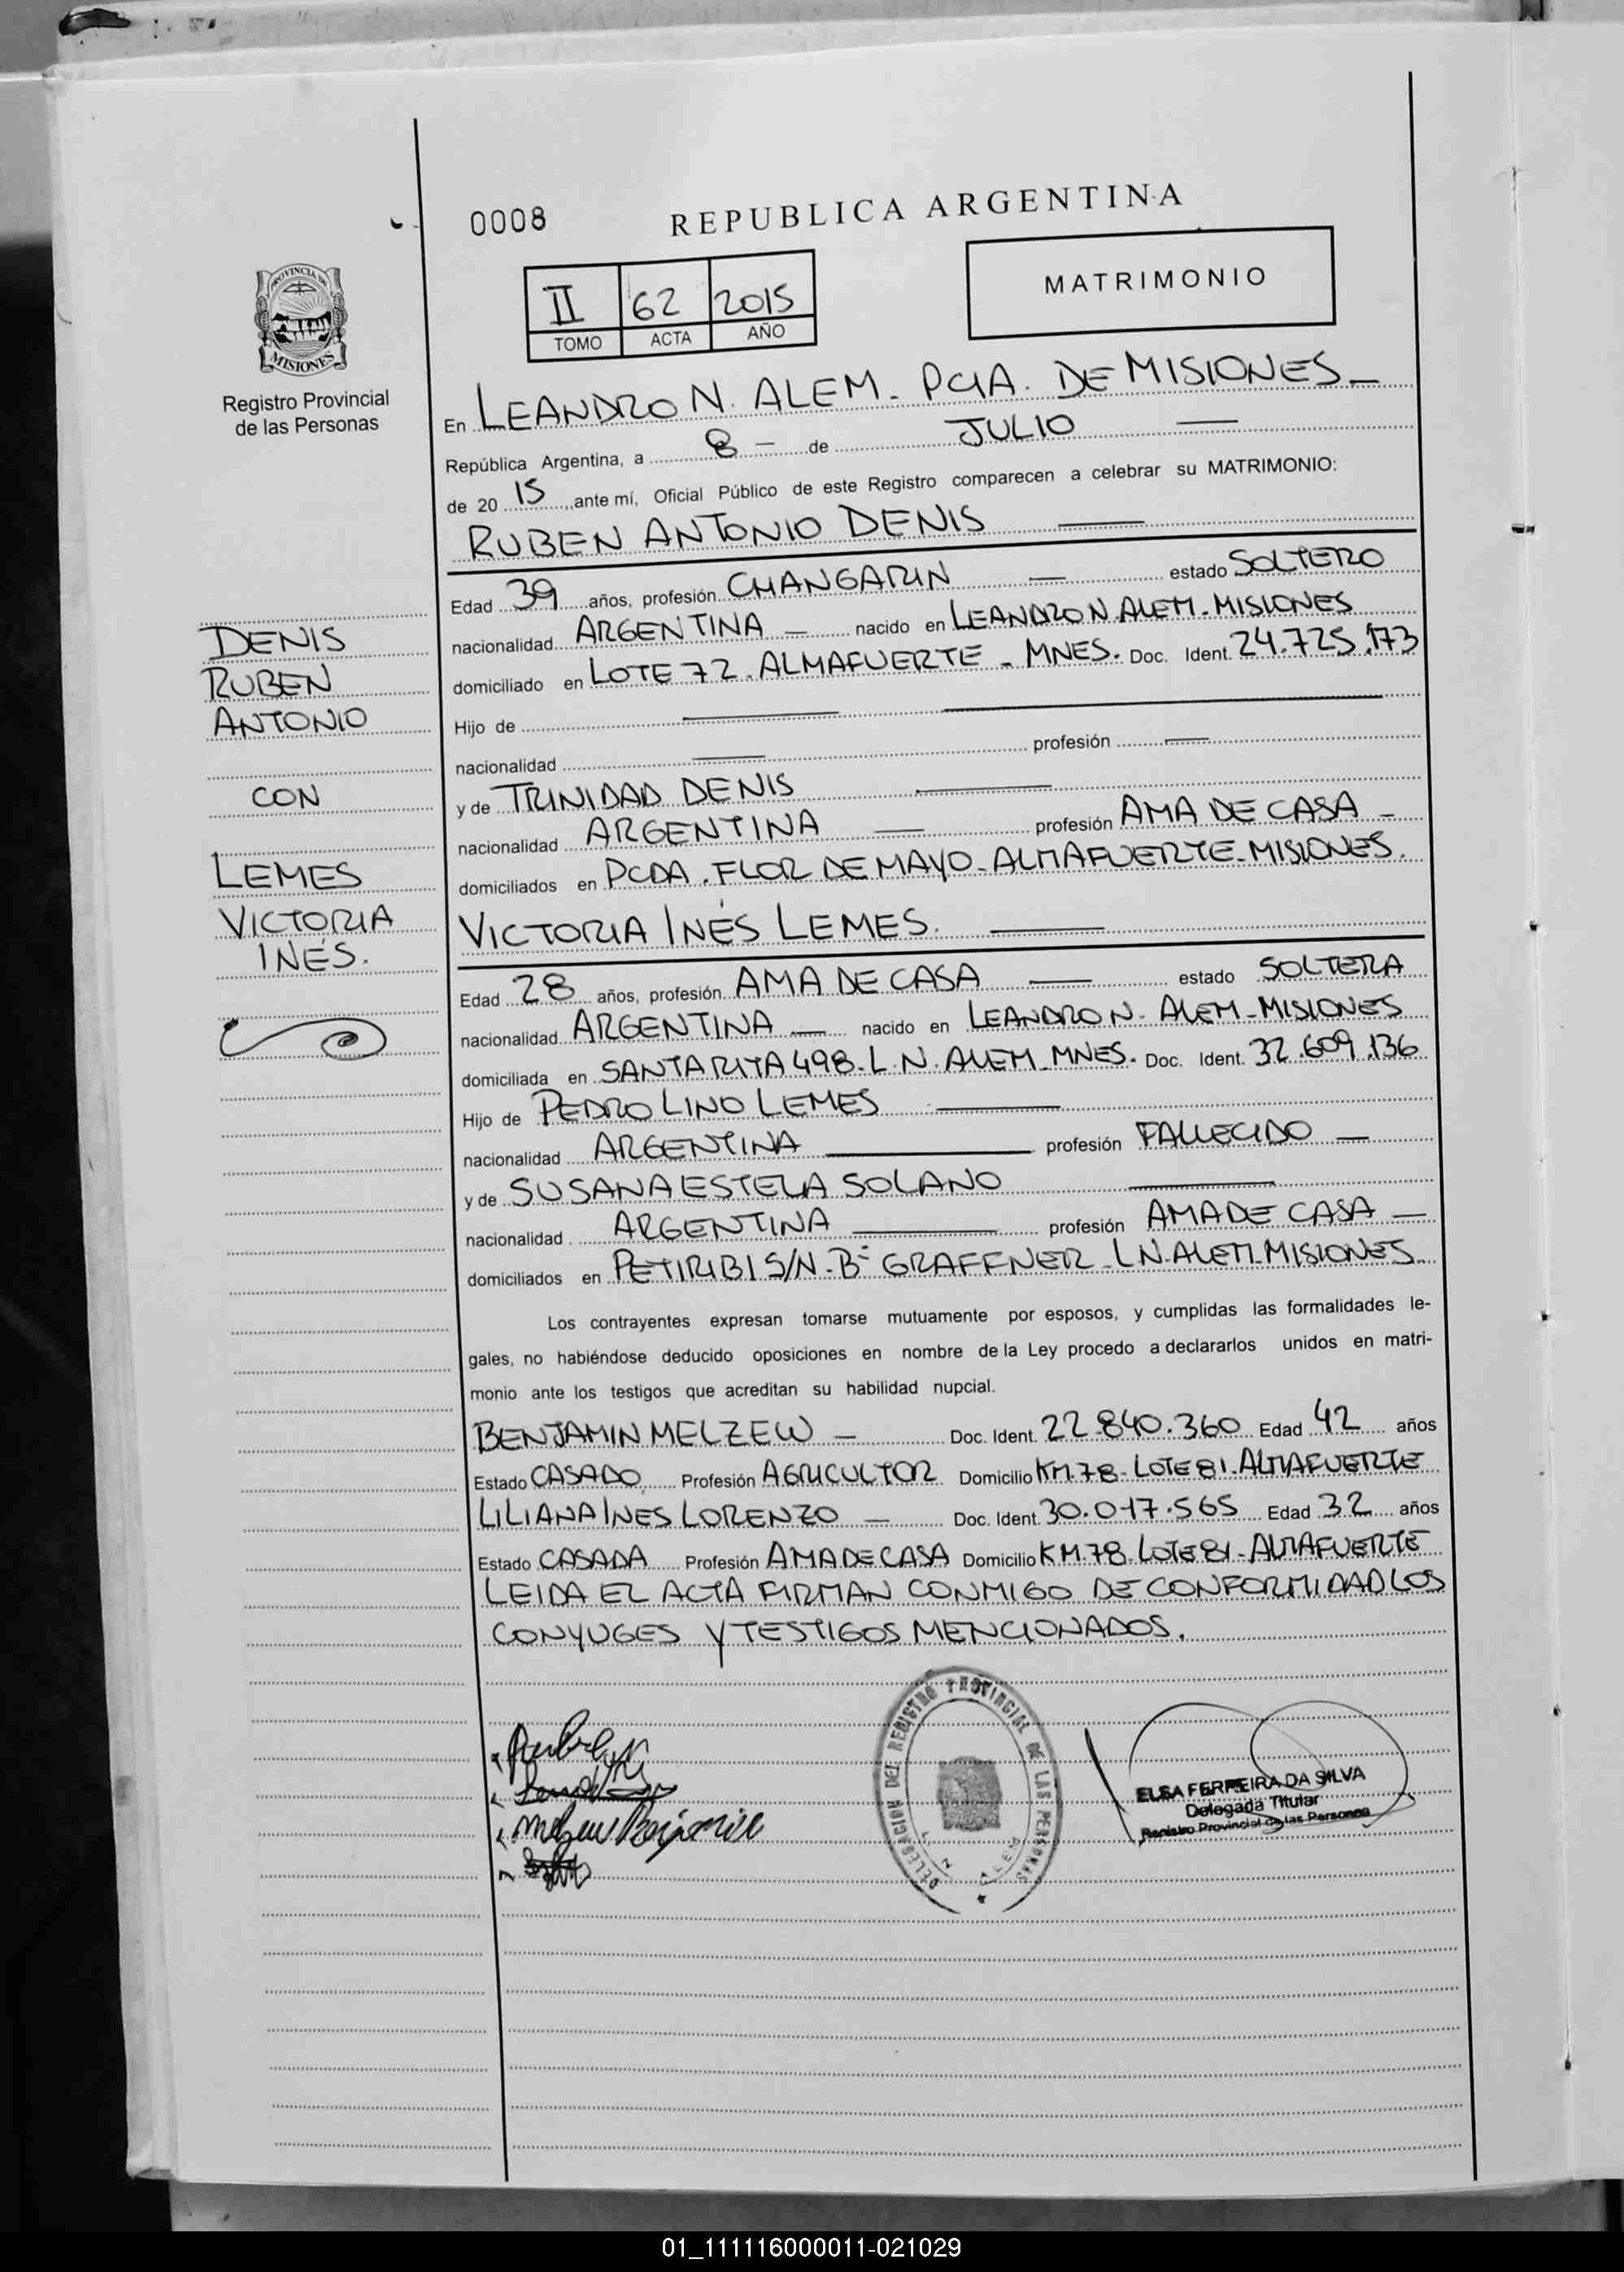 0008
REPUBLICA ARGENTINA
PROVINCIA DE
MISIONES
Registro Provincial
de las Personas
II 62 2015
TOMO ACTA AÑO
MATRIMONIO
En LEANDRO N. ALEM - PCIA. DE MISIONES -
República Argentina, a 8 - de JULIO —
de 20 15 , ante mí, Oficial Público de este Registro comparecen a celebrar su MATRIMONIO:
RUBEN ANTONIO DENIS —
Edad 39 años, profesión CHANGARIN — estado SOLTERO
nacionalidad ARGENTINA — nacido en LEANDRO N. ALEM - MISIONES
domiciliado en LOTE 72. ALMAFUERTE - MNES. Doc. Ident. 24.725.173
Hijo de — —
nacionalidad — profesión —
y de TRINIDAD DENIS —
nacionalidad ARGENTINA — profesión AMA DE CASA -
domiciliados en PCDA. FLOR DE MAYO - ALMAFUERTE - MISIONES.
VICTORIA INÉS LEMES. —
Edad 28 años, profesión AMA DE CASA — estado SOLTERA
nacionalidad ARGENTINA — nacido en LEANDRO N. ALEM - MISIONES
domiciliada en SANTA RITA 498. L. N. ALEM. MNES. Doc. Ident. 32.609.136
Hijo de PEDRO LINO LEMES —
nacionalidad ARGENTINA — profesión FALLECIDO —
y de SUSANA ESTELA SOLANO —
nacionalidad ARGENTINA — profesión AMA DE CASA —
domiciliados en PETIRIBI S/N. Bº GRAFFNER - L N. ALEM. MISIONES
Los contrayentes expresan tomarse mutuamente por esposos, y cumplidas las formalidades le-
gales, no habiéndose deducido oposiciones en nombre de la Ley procedo a declararlos unidos en matri-
monio ante los testigos que acreditan su habilidad nupcial.
BENJAMIN MELZEW — Doc. Ident. 22.840.360 Edad 42 años
Estado CASADO Profesión AGRICULTOR Domicilio KM. 78 - LOTE 81. ALMAFUERTE
LILIANA INES LORENZO — Doc. Ident. 30.017.565 Edad 32 años
Estado CASADA Profesión AMA DE CASA Domicilio KM. 78. LOTE 81 - ALMAFUERTE
LEIDA EL ACTA FIRMAN CONMIGO DE CONFORMIDAD LOS
CONYUGES Y TESTIGOS MENCIONADOS.
DENIS
RUBEN
ANTONIO
CON
LEMES
VICTORIA
INÉS.
DELEGACION DEL REGISTRO PROVINCIAL DE LAS PERSONAS
L. N. ALEM
ELSA FERREIRA DA SILVA
Delegada Titular
Registro Provincial de las Personas
01_111116000011-021029